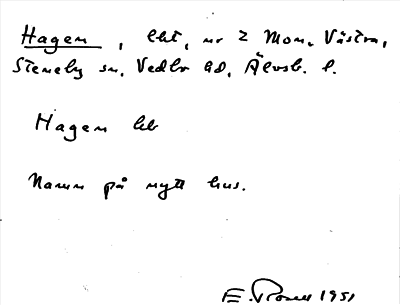 Hagen, lht, nr 2 Mon. Västra,
Steneby sn, Vedbo hd, Älvsb. l.
Hagen lht
Namn på nytt hus.
E. Rosell 1951